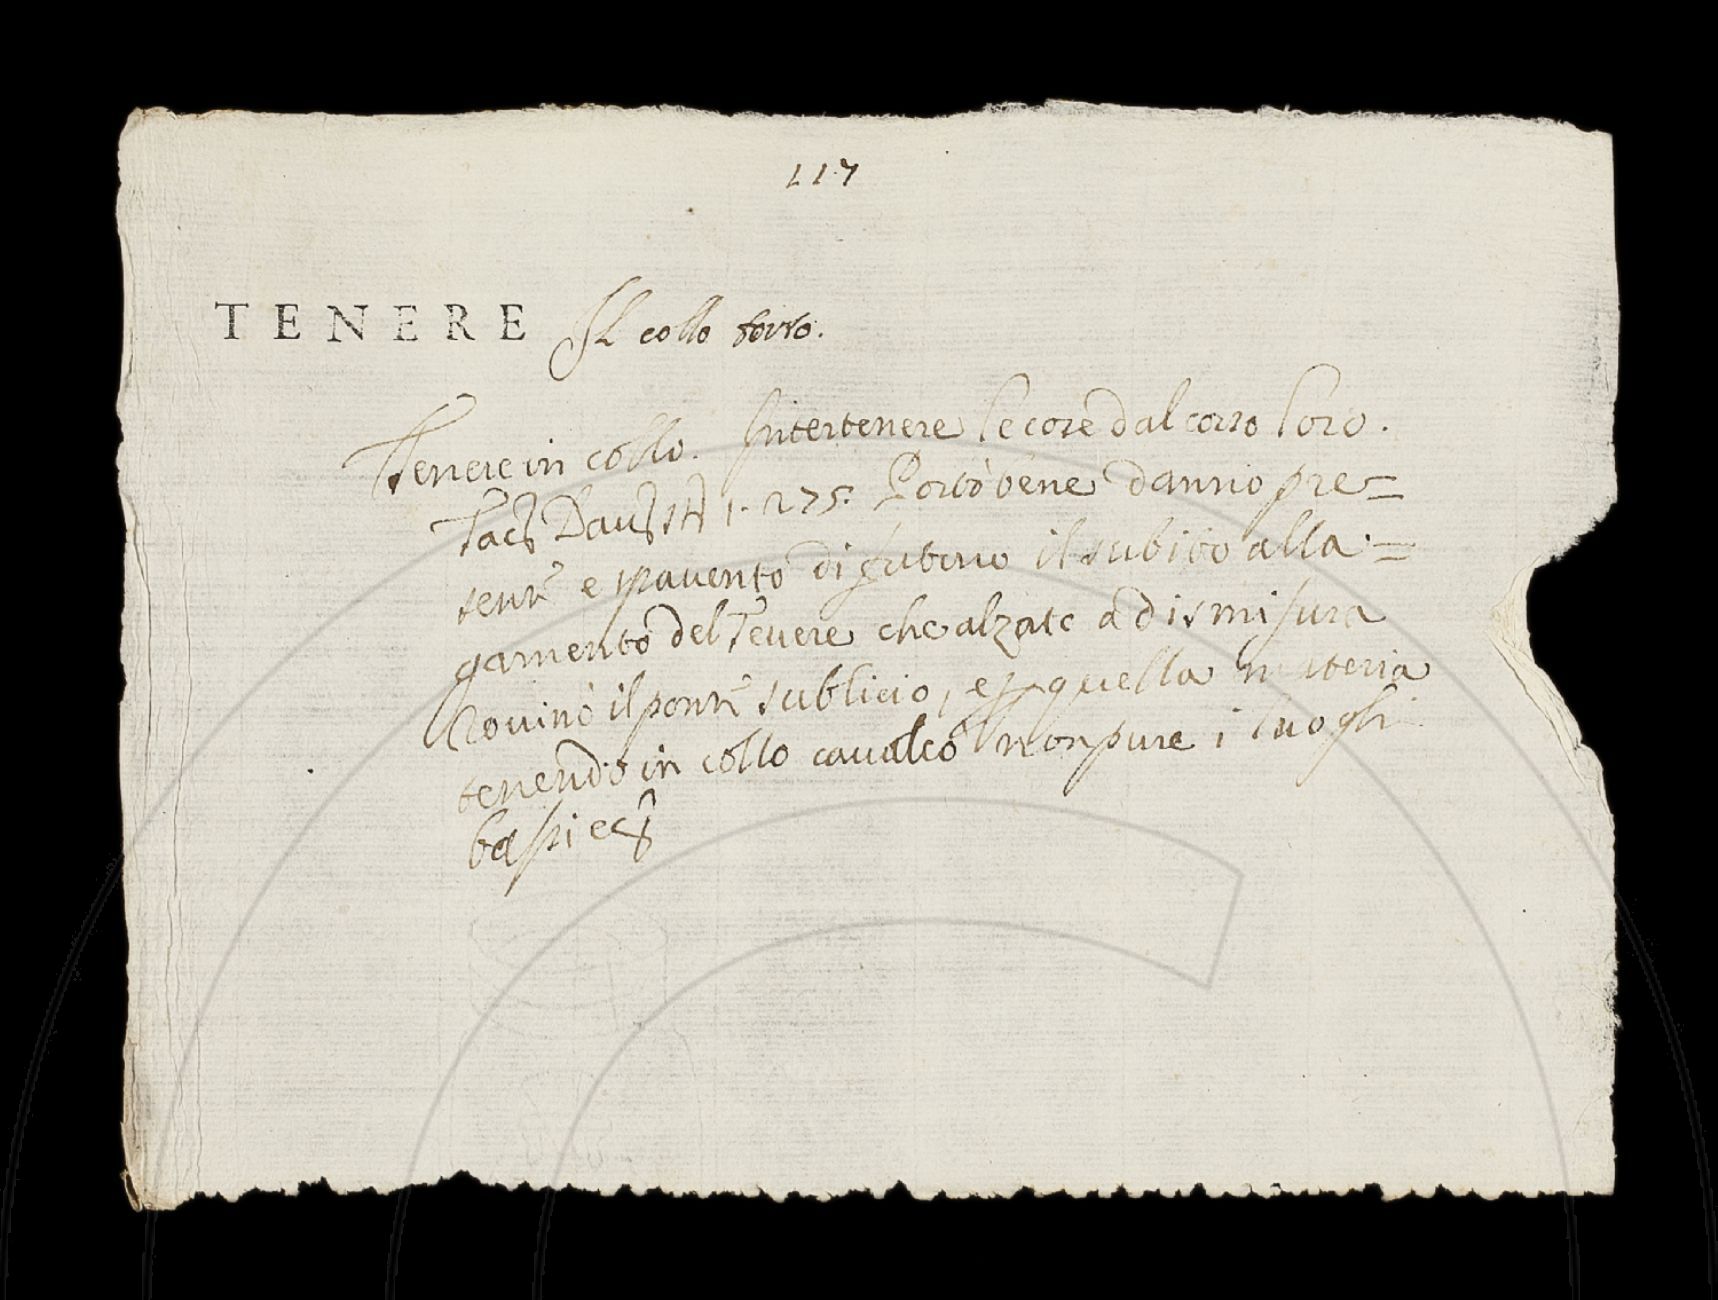 117
TENERE Il collo torto.
Tenere in collo. Intertenere le cose dal corso loro.
Tac. Dav. St. 1. 275. Portò bene danno pre=
sente e spavento di futuro il subito alla=
gamento del Tevere che alzato a dismisura
Rovinò il ponte sublicio, e quella materia
tenendo in collo cavalcò non pure i luoghi
bassi ec.